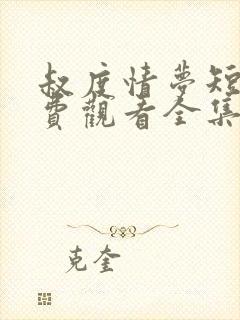 叔度情夢短
費觀看全集
克奎